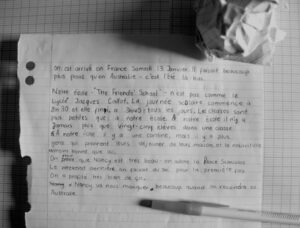 On est arrivé en France Samedi 13 Janvier. Il faisait beaucoup
plus froid qu'en Australie - c'est l'été là bas.
Notre école "The Friends' School" n'est pas comme le
Lycée Jacques Callot. La journée scolaire commence à
8h30 et elle finit à tous les jours. Les classes sont
plus petites que à notre école. A notre école il n'y a
jamais plus que vingt-cinq élèves dans une classe.
A notre école il y a une cantine, mais il y a plus
gens qui prennent leurs déjeuner de leurs maison et la nourriture
bonne que ici.
On pense que Nancy est très beau - on aime la Place Stanislas.
Le weekend dernière on faisait du ski pour la première fois
On a profité très bien de ça.
Nancy va nous manquer beaucoup quand on reviendra en
Australie.